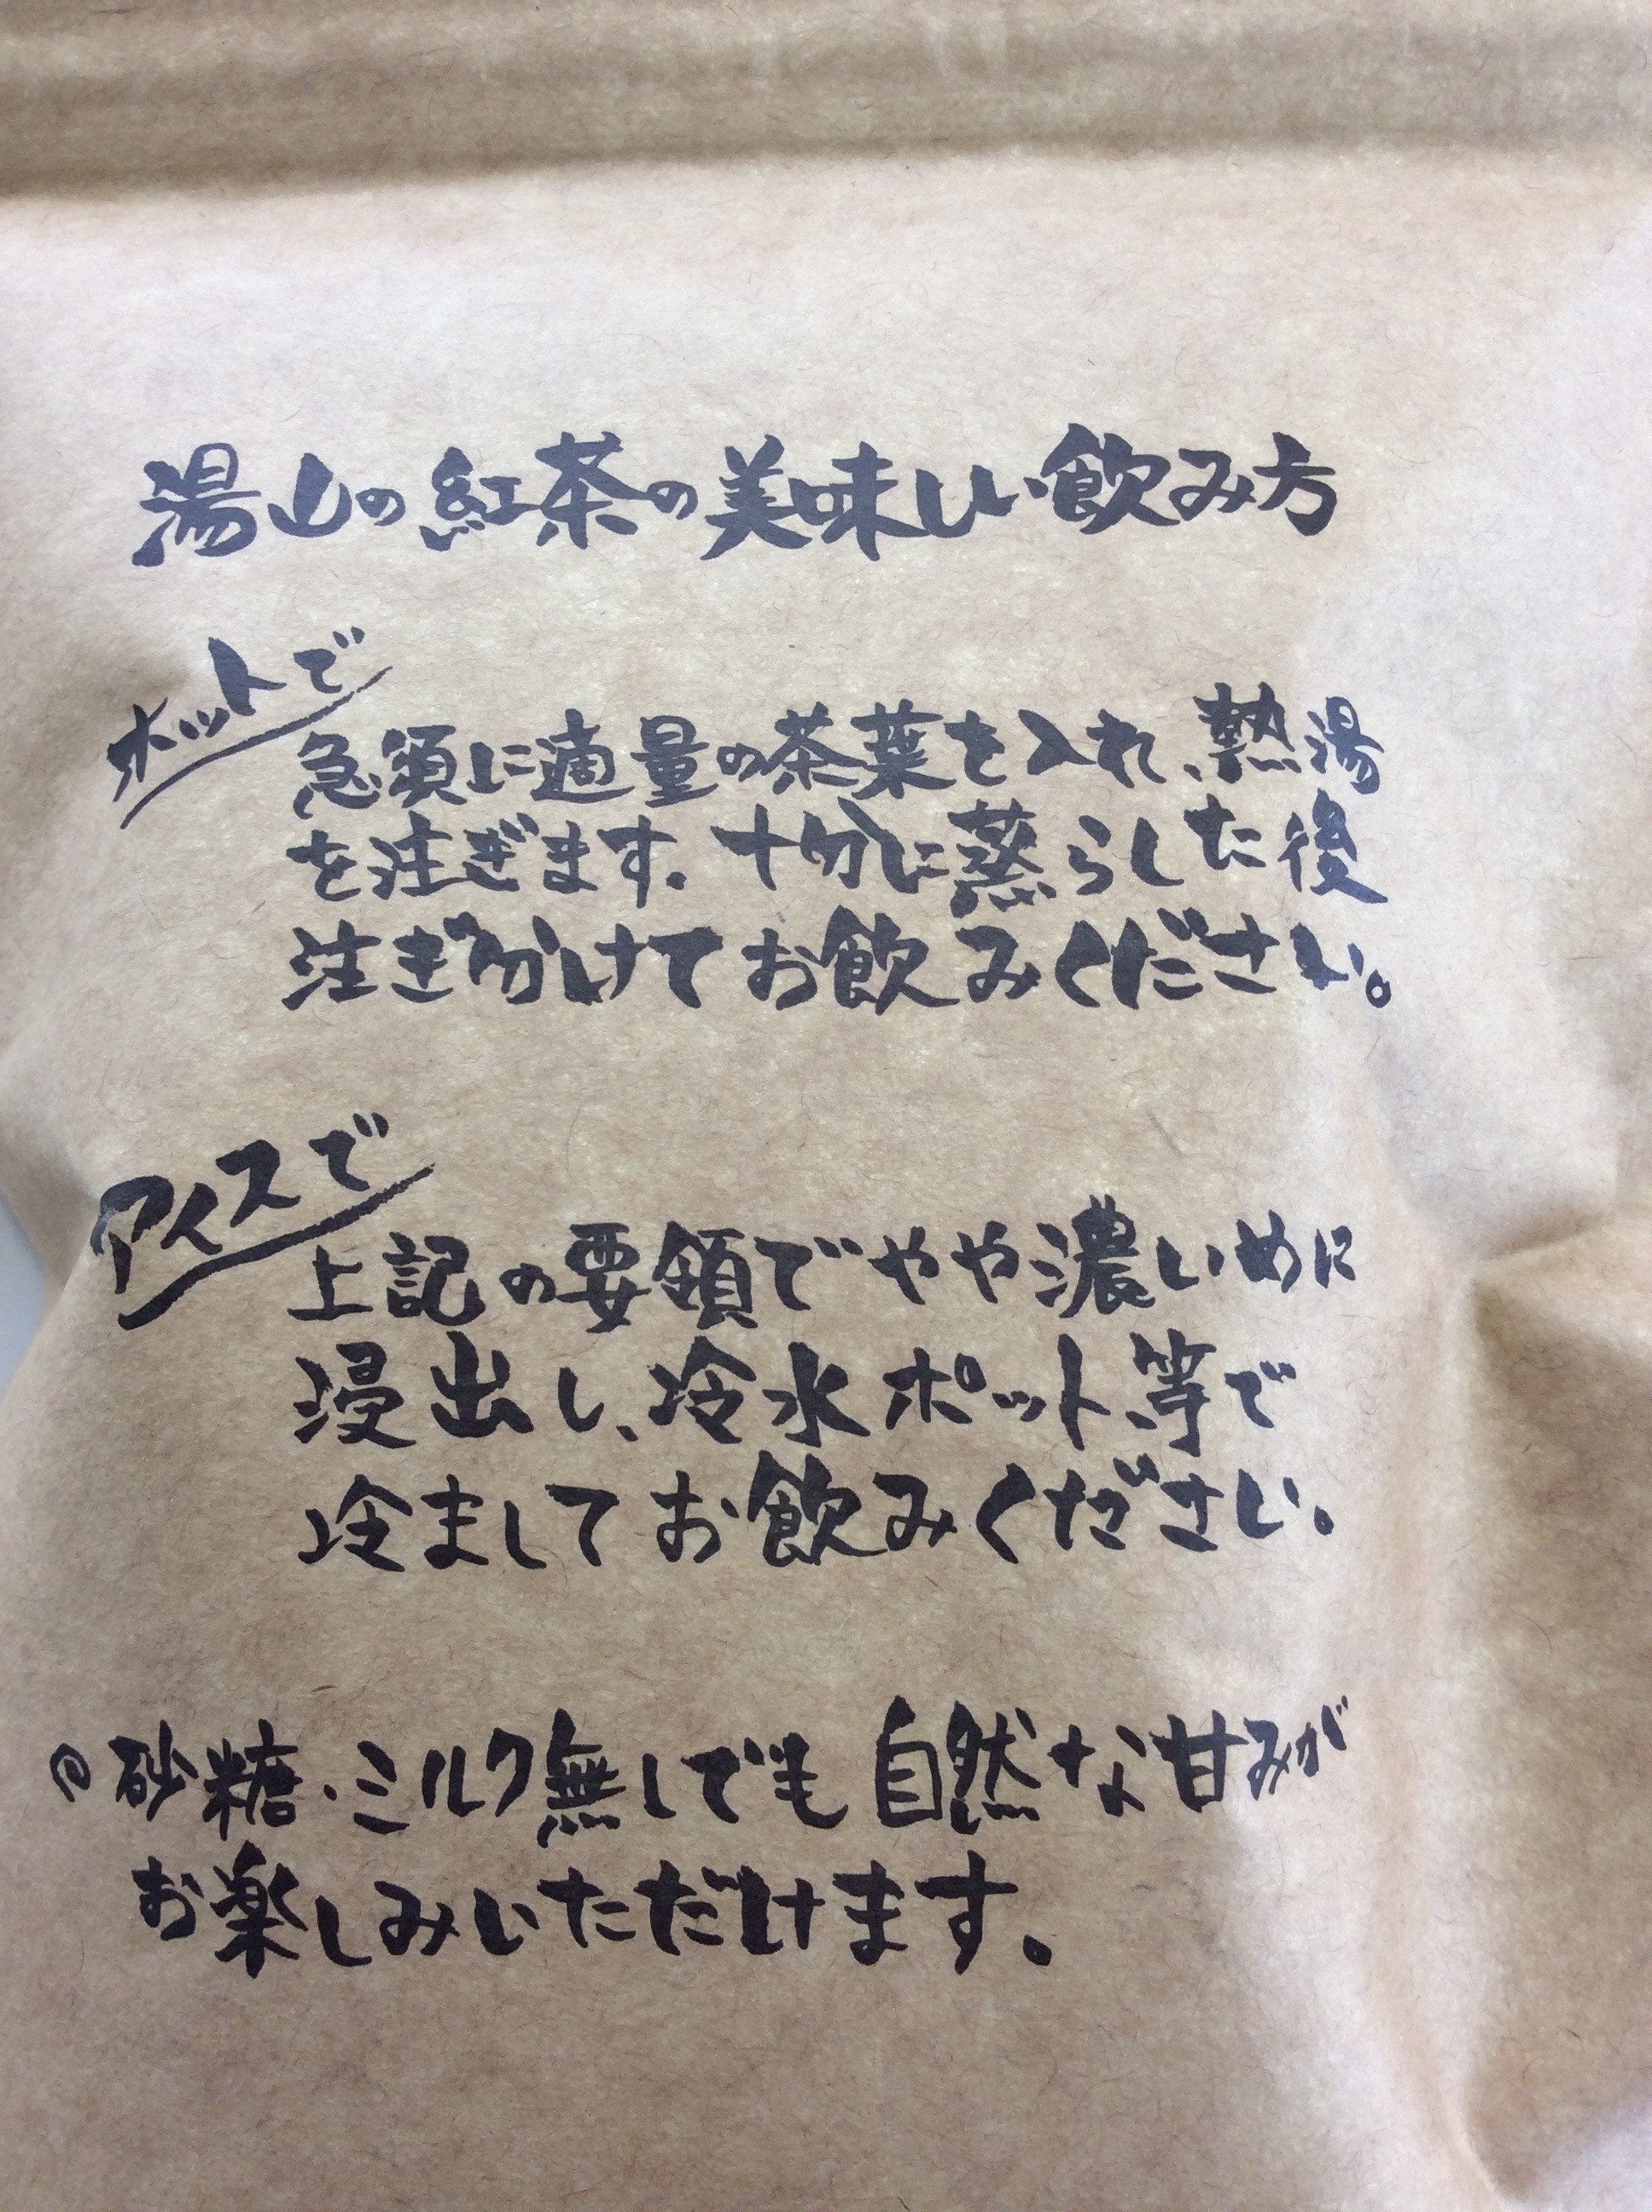 湯山の紅茶の美味しい飲み方
ホットで
急須に適量の茶葉を入れ、熱湯
を注ぎます。十分に蒸らした後
注ぎ分けてお飲みください。
アイスで
上記の要領でやや濃いめに
浸出し、冷水ポット等で
冷ましてお飲みください。
◎砂糖・ミルク無しでも自然な甘みが
お楽しみいただけます。